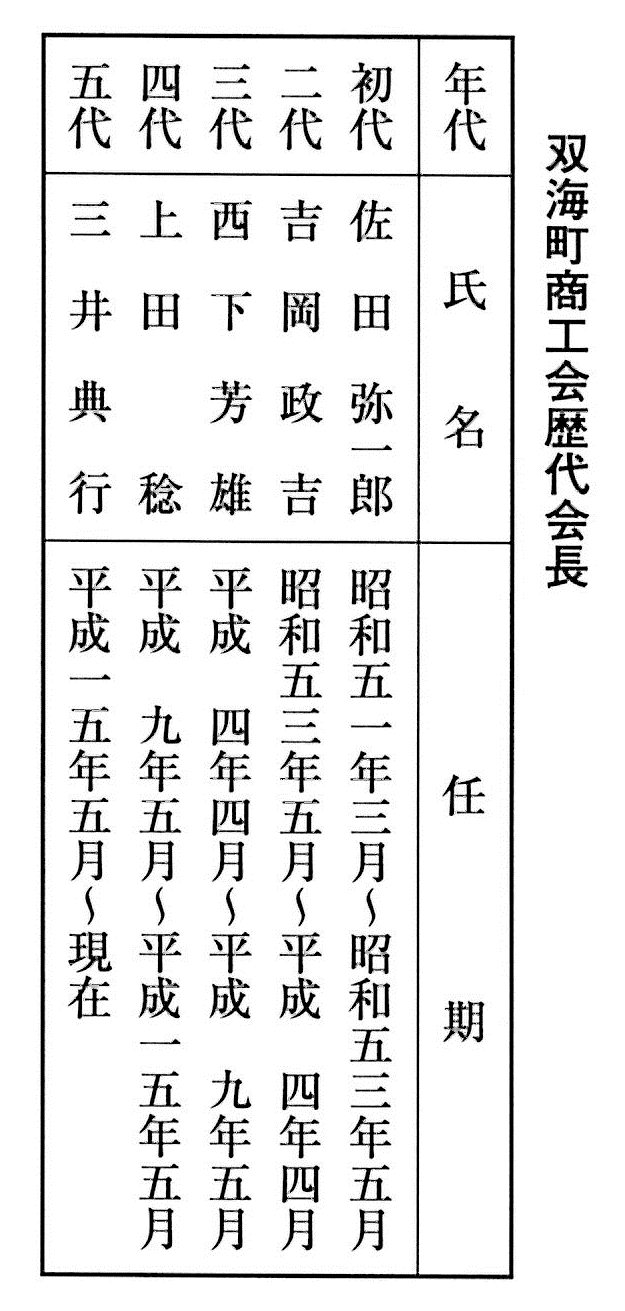 双海町商工会歴代会長
年代 氏名 任期
初代 佐田弥一郎 昭和五一年三月〜昭和五三年五月
二代 吉岡政吉 昭和五三年五月〜平成 四年四月
三代 西下芳雄 平成 四年四月〜平成 九年五月
四代 上田 稔 平成 九年五月〜平成一五年五月
五代 三井典行 平成一五年五月〜現在